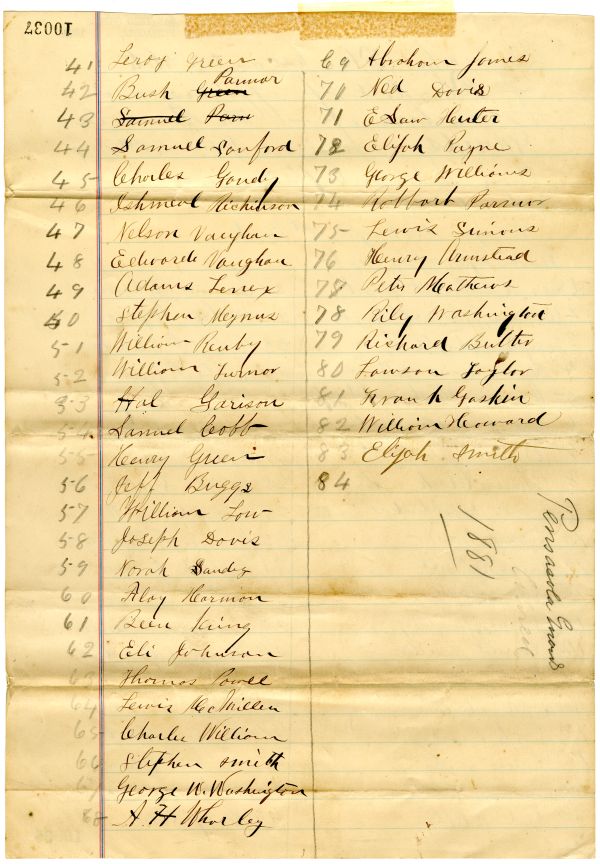 10037
41 Leroy Green
42 Bush Green Parmor
43 Samuel Parm
44 Samuel Sanford
45 Charles Gandy
46 Ishmeal Hickinson
47 Nelson Vaughan
48 Edwards Vaughan
49 Adams Lenex
50 Stephen
51 William Renby
52 William Turnor
53 Hal Garison
54 Samuel Cobb
55 Henry Green
56 Jeff Buggs
57 William Low
58 Joseph Davis
59 Norah Sandez
60 Aloy Harmon
61 Been King
62 Eli Johnson
63 Thomas Powell
64 Lewis McMillen
65 Charles William
66 Stephen Smith
67 George W. Washington
68 A. H Whorley
69 Abraham James
70 Ned Davis
71 E Saw Hunter
72 Elijah Payne
73 George Williams
74 Robbart Parmor
75 Lewis Simons
76 Henry Armstead
78 Peter Mathews
78 Rily Washington
79 Richard Butler
80 Lawson Taylor
81 Frank Gaskin
82 William Howard
83 Elijah Smith
84
Pensacola Guard
1881